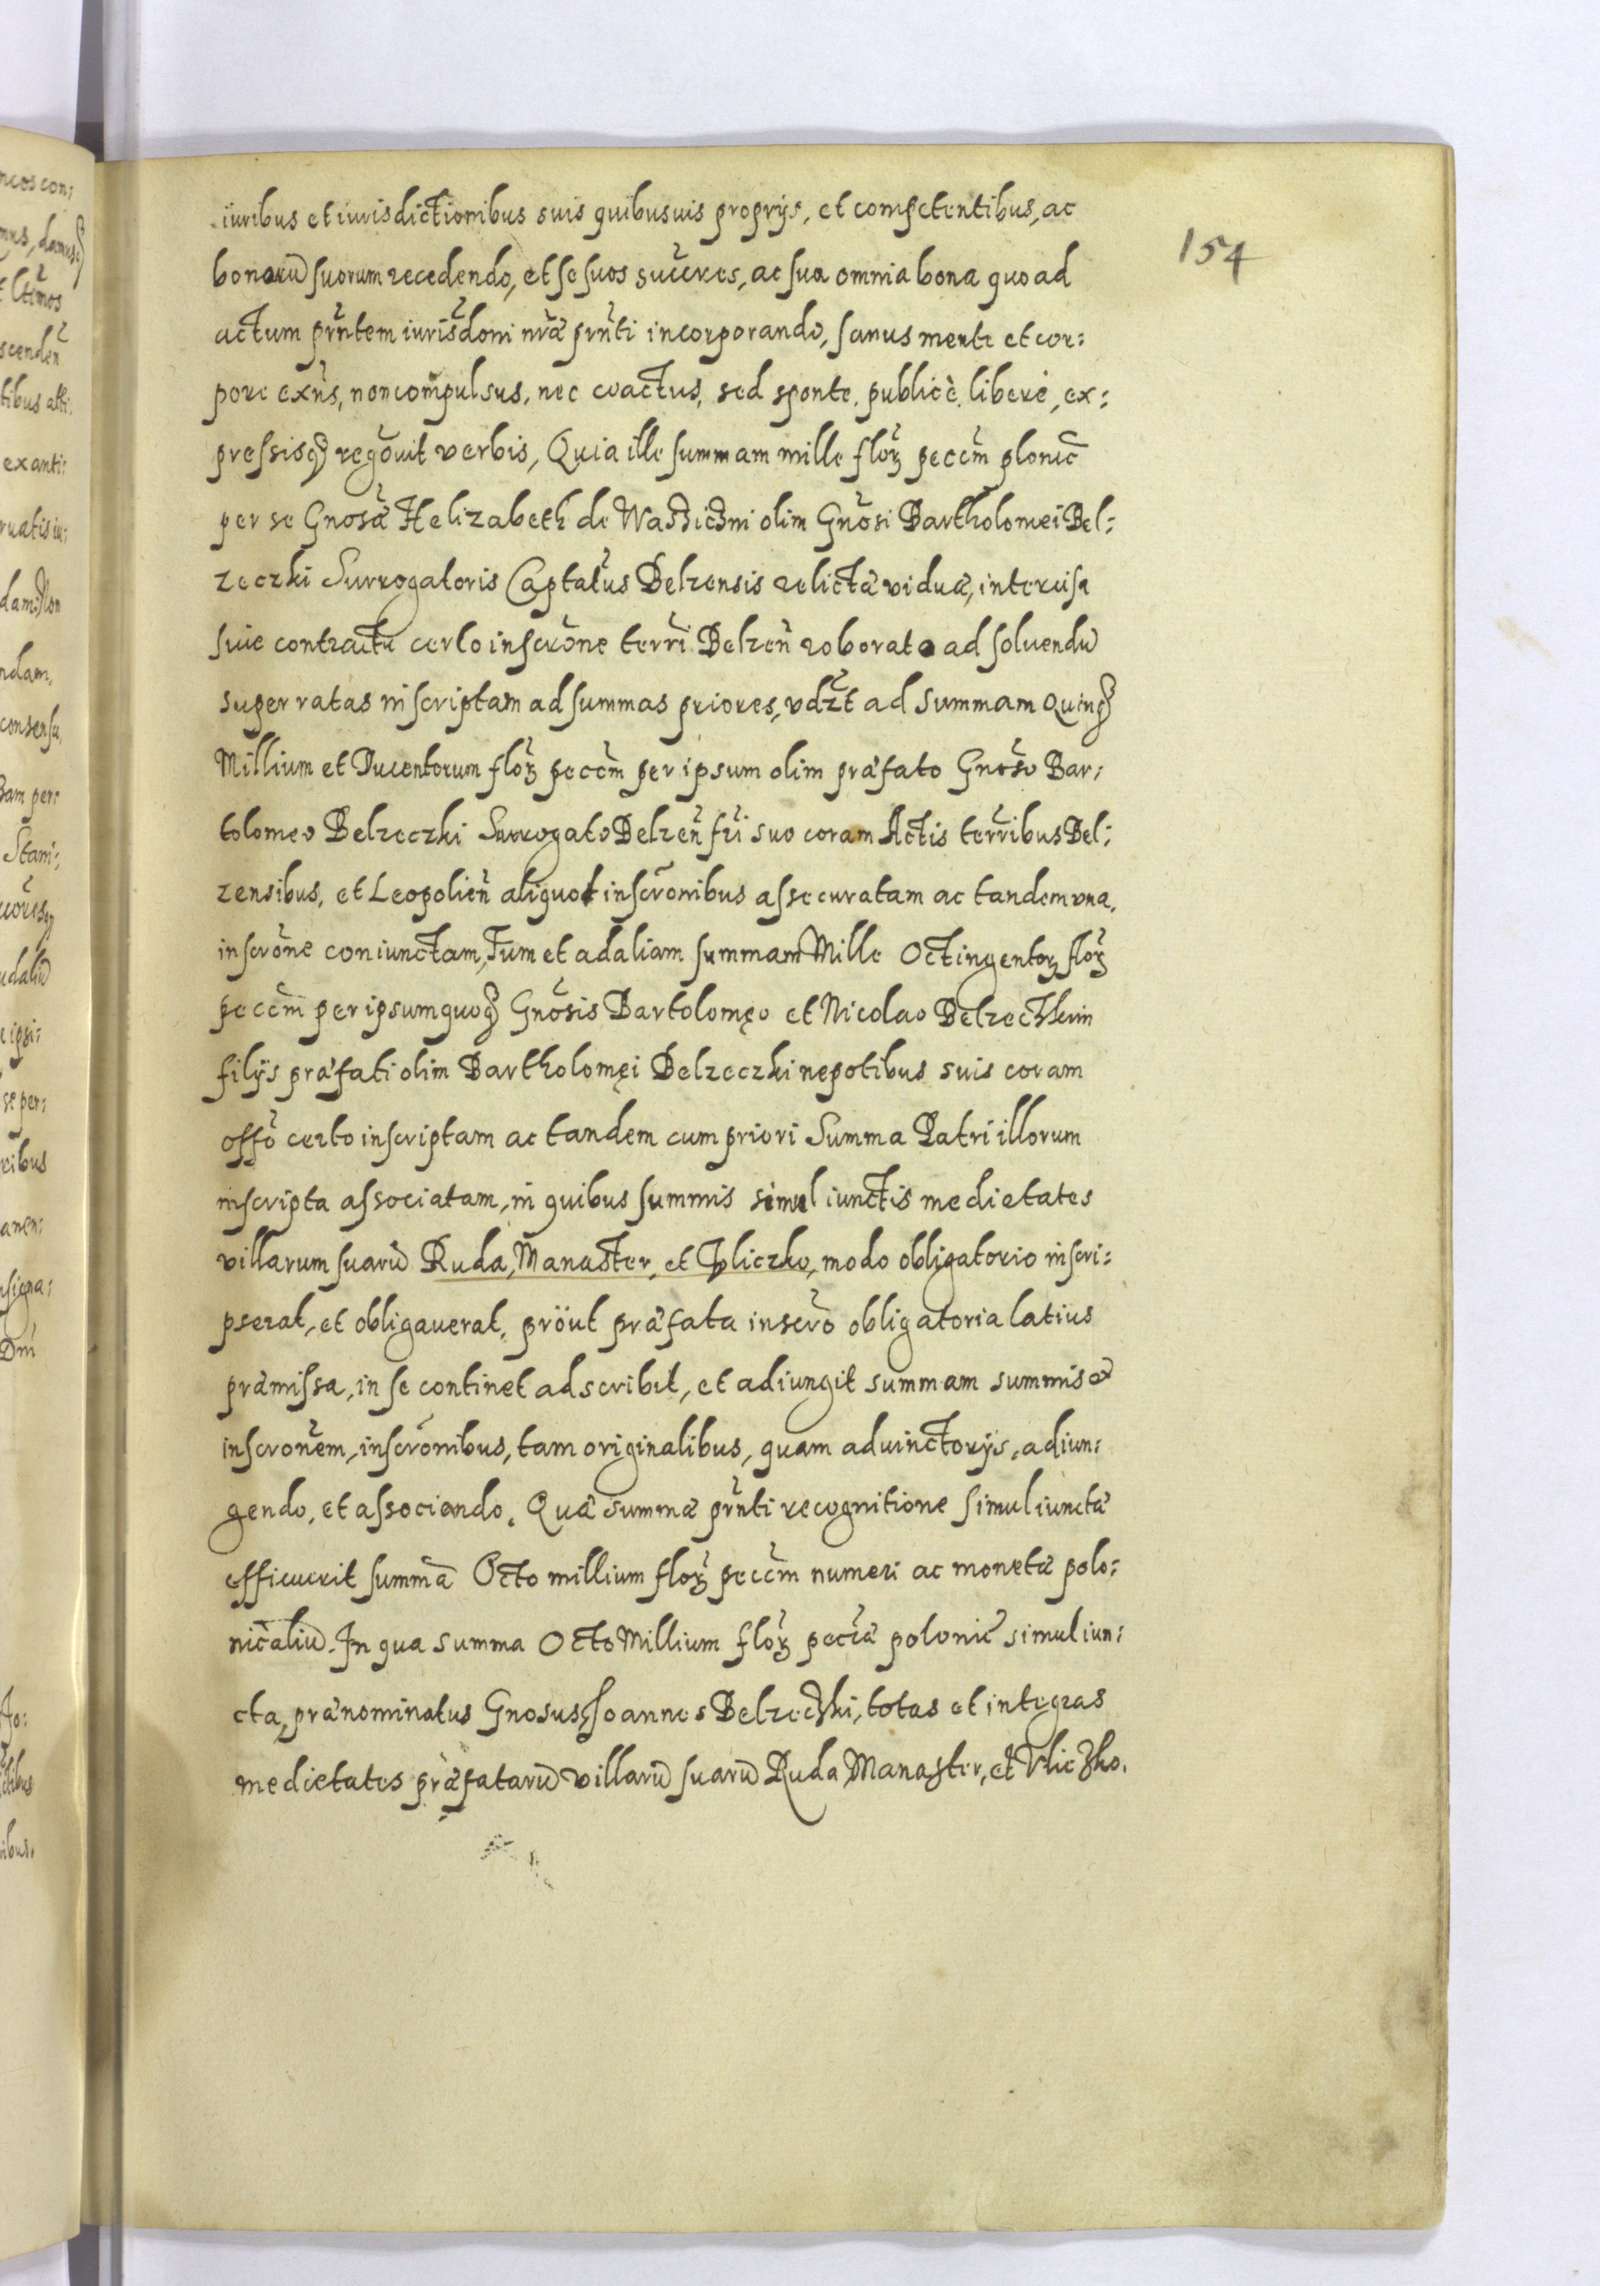 iuribus et iurisdictionibus suis quibusuis proprijs, et competentibus, ac
154
bonorū suorum recedendo, et se suos succres, ac sua omnia bona quo ad
actum prntem iurisdoni nræ prnti incorporando, sanus mente et cor:
pore exns, non compulsus, nec coactus, sed sponte, publicè, liberè, ex:
pressisq̃ regōuit verbis, Quia ille summam mille florꝝ peccm plonic
per se Gnosæ Helizabeth de olim Gnosi Bartholomei Bel:
zeczki Surrogatoris Captatus Belzensis relictæ viduæ, intercisa
siue contractu certo inscrōne terri Belzen̄ roborato ad soluendū
super ratas inscriptam ad summas priores, vdzt ad summam Quinq̃
Millium et Ducentorum florꝝ peccm per ipsum olim præfato Gnoso Bar:
tolomeo Belzeczki Surrogato Belzen̄ fri suo coram Actis terribus Bel:
zensibus, et Leopolien̄ aliquot inscronibus assecuratam ac tandem vna,
inscrōne coniunctam, Tum et ad aliam summam Mille Octingentorꝝ florꝝ
peccm per ipsum quoq̃ Gnosis Bartolomęo et Nicolao
filijs præfati olim Bartholomęi Belzeczki nepotibus suis coram
offō certo inscriptam ac tandem cum priori Summa Patri illorum
inscripta associatam, in quibus summis simul iunctis medietates
villarum suarū Ruda, Manaster, et Vliczko, modo obligatorio inscri:
pserat, et obligauerat, proüt præfata inscrō obligatoria latius
præmissa, in se continet adscribit, et adiungit summam summis et
inscronem, inscrōnibus, tam originalibus, quam aduinctorijs, adiun:
gendo, et associando. Quæ summæ prnti recognitione simul iunctæ
efficuerit summā Octo millium florꝝ peccm numeri ac monetæ polo:
nicaliū. In qua summa Octo Millium florꝝ peccæ polonic simul iun:
cta, prænominatus Gnosus Joannes Belzeczki, totas et integras
medietates præfatarū villarū suarū Ruda, Manaster, et Vliczko.